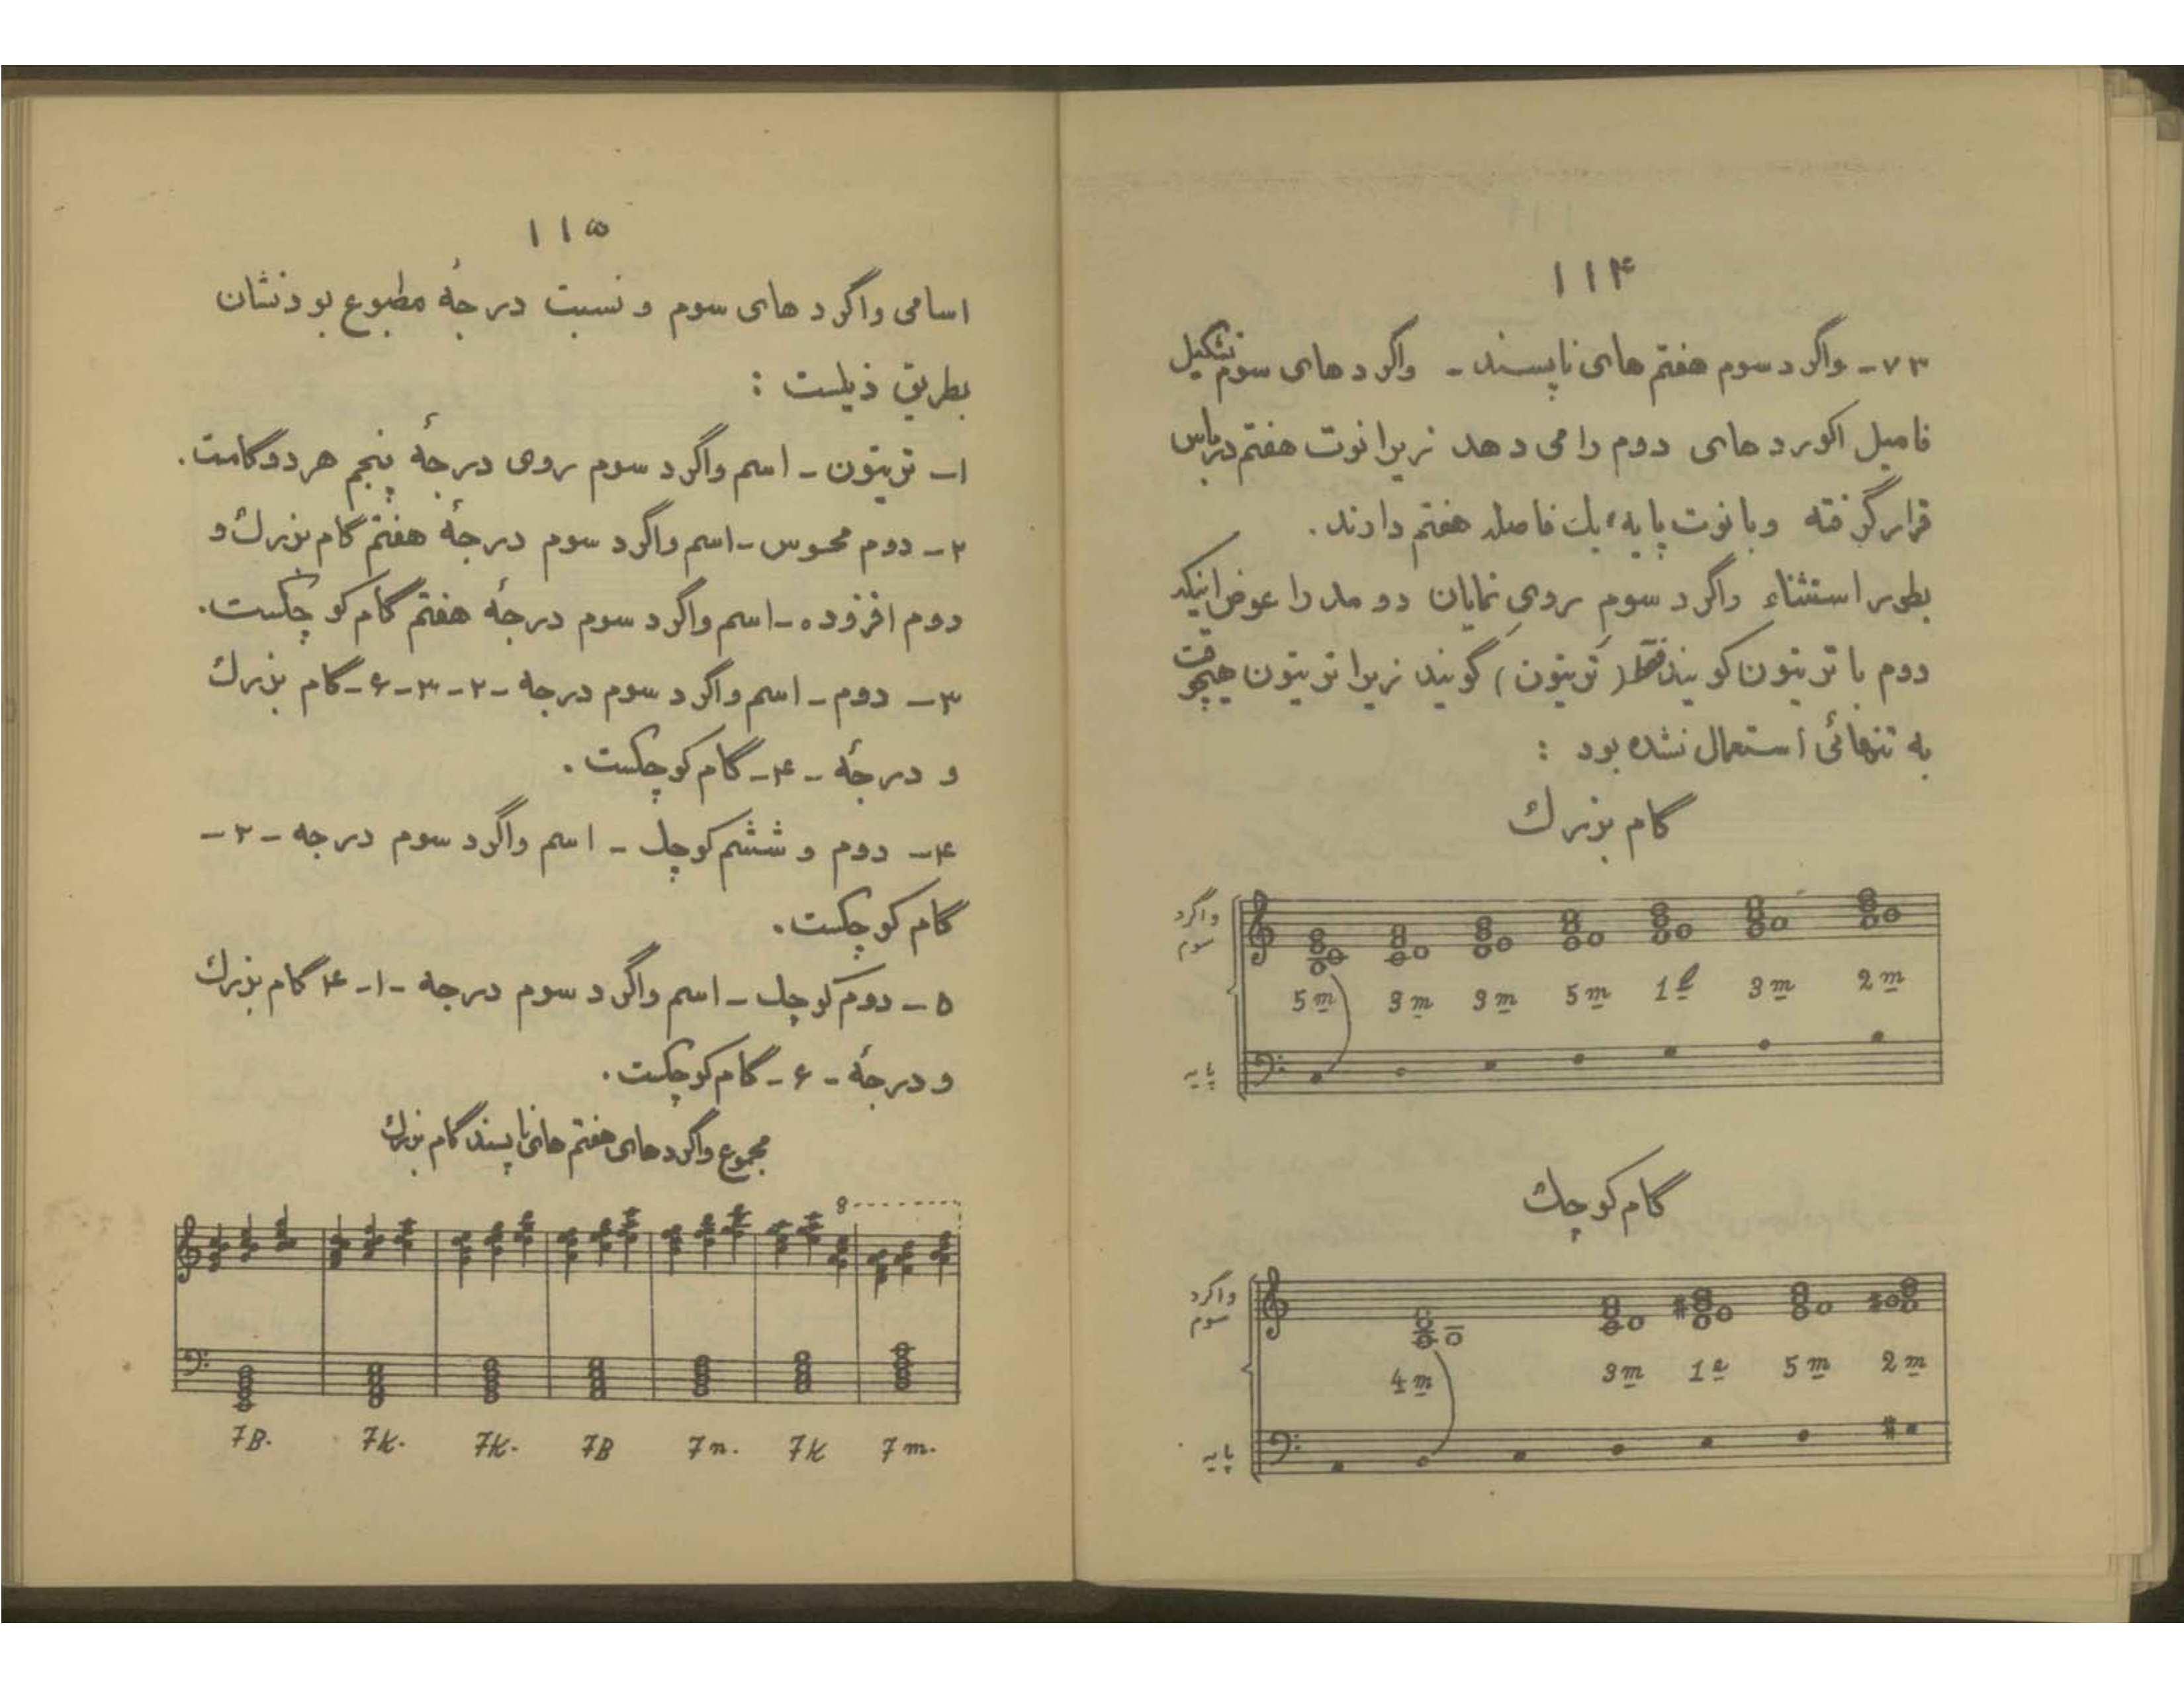 ۱۱۴
۷۳- واگرد سوم هفتم های ناپسند - واگرد های سوم تشکیل
فامیل اکورد های دوم را می دهد زیرا نوت هفتم در باس
قرار گرفته و با نوت پایه یک فاصله هفتم دارند.
بطور استثناء واگرد سوم روی نمایان دو مد را عوض اینکه
دوم با تریتون گویند فقط (تریتون) گویند زیرا تریتون هیچوقت
به تنهائی استعمال نشده بود :
گام بزرك
واگرد سوم
5 m 3 m 3 m 5 m 1 e 3 m 2 m
پایه
گام کوچك
واگرد سوم
4 m 3 m 1 e 5 m 2 m
پایه
۱۱۵
اسامی واگرد های سوم و نسبت درجهٔ مطبوع بودنشان
بطریق ذیلست :
۱- تریتون - اسم واگرد سوم روی درجهٔ پنجم هر دو گامت.
۲- دوم محسوس - اسم واگرد سوم درجهٔ هفتم گام بزرك و
دوم افزوده - اسم واگرد سوم درجهٔ هفتم گام کوچکست.
۳- دوم - اسم واگرد سوم درجه - ۲-۳-۶- گام بزرك
و درجهٔ - ۴- گام کوچکست.
۴- دوم و ششم کوچك - اسم واگرد سوم درجه - ۲-
گام کوچکست.
۵- دوم کوچك - اسم واگرد سوم درجه - ۱-۴ گام بزرك
و درجهٔ - ۶- گام کوچکست.
مجموع واگرد های هفتم های ناپسند گام بزرك
8
7B. 7K. 7K. 7B 7n. 7K 7m.